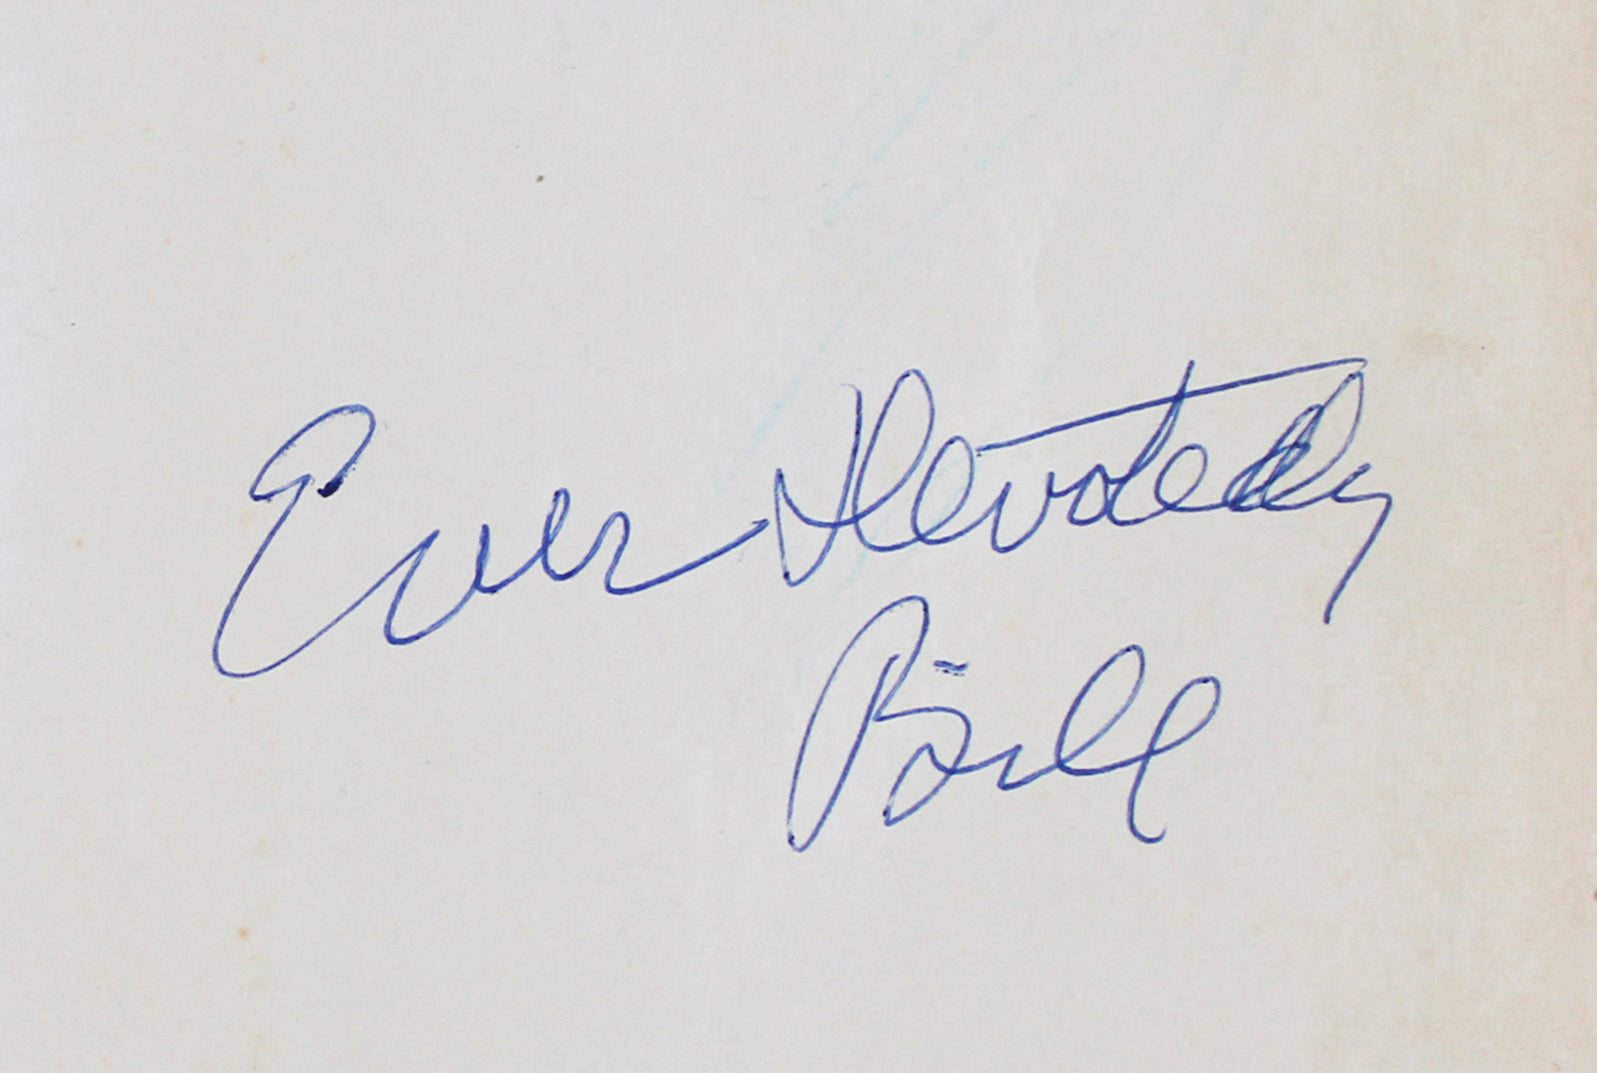 Ever Devotedly
Bill